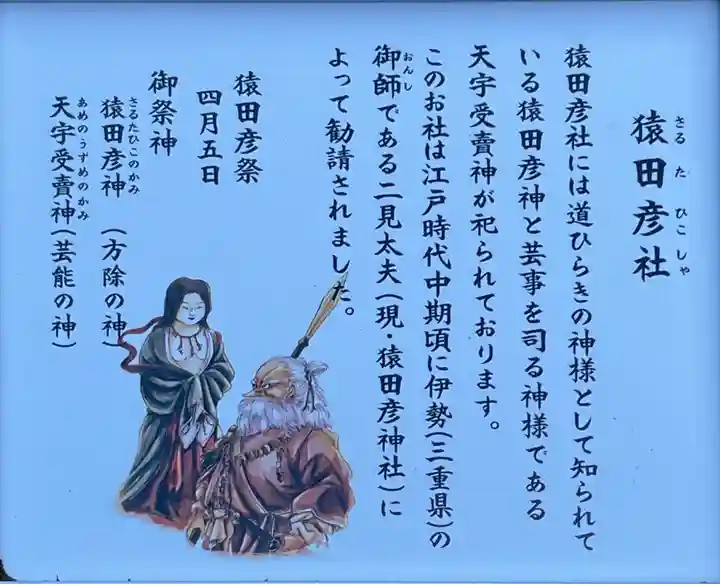 猿田彦社
さるたひこしゃ
猿田彦社には道ひらきの神様として知られて
いる猿田彦神と芸事を司る神様である
天宇受賣神が祀られております。
このお社は江戸時代中期頃に伊勢(三重県)の
御師である二見太夫(現・猿田彦神社)に
おんし
よって勧請されました。
猿田彦祭
四月五日
御祭神
猿田彦神(方除の神)
さるたひこのかみ
天宇受賣神(芸能の神)
あめのうずめのかみ